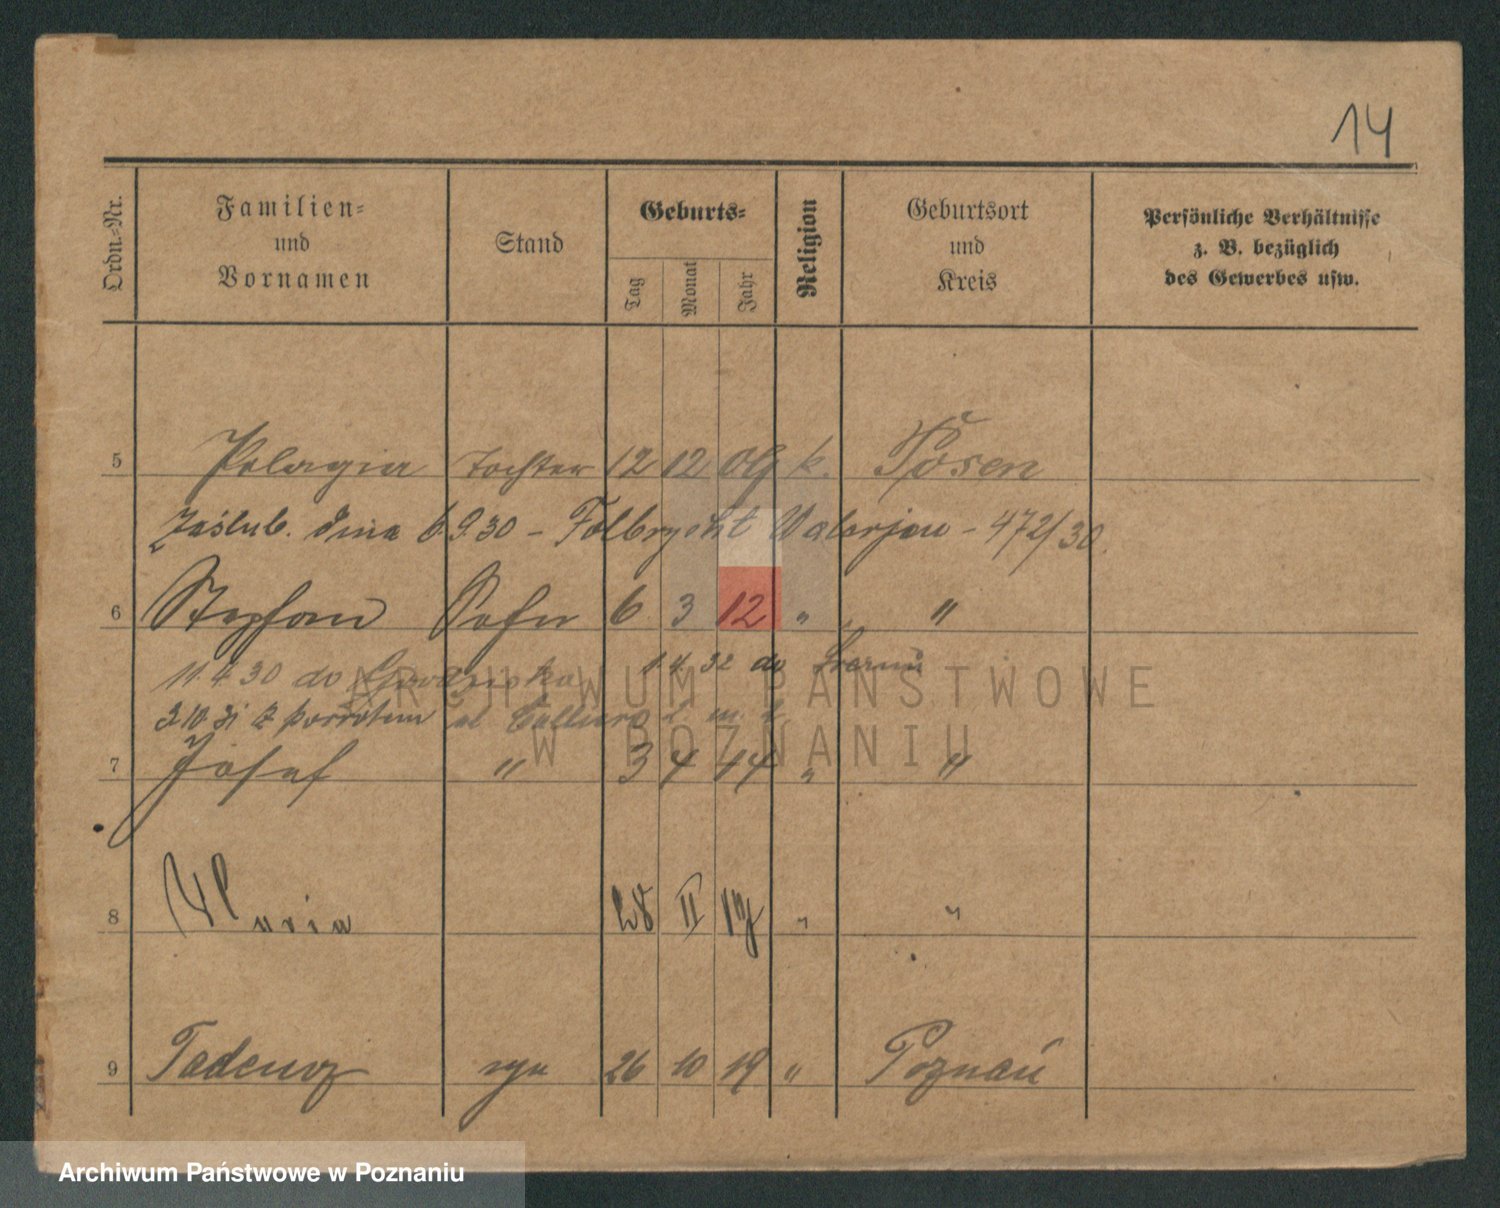 14
Ordn.-Nr.
Familien-
und
Vornamen
Stand
Geburts-
Tag
Monat
Jahr
Religion
Geburtsort
und
Kreis
Persönliche Verhältnisse
z. B. bezüglich
des Gewerbes usw.
5 Pelagia Tochter 12 12 09 k. Posen
Zaślub. dnia 6.9.30 – Folbrycht Walerjan – 472/30.
6 Stephan Sohn 6 3 12 " "
11.4.30 do Grodziska 1.4.32 do
3.10.31 z powrotem
7 Josef " 3 4 14 " "
8 Maria 28 II 17 " "
9 Tadeusz syn 26 10 19 " Poznań
ARCHIWUM PAŃSTWOWE
W POZNANIU
Archiwum Państwowe w Poznaniu